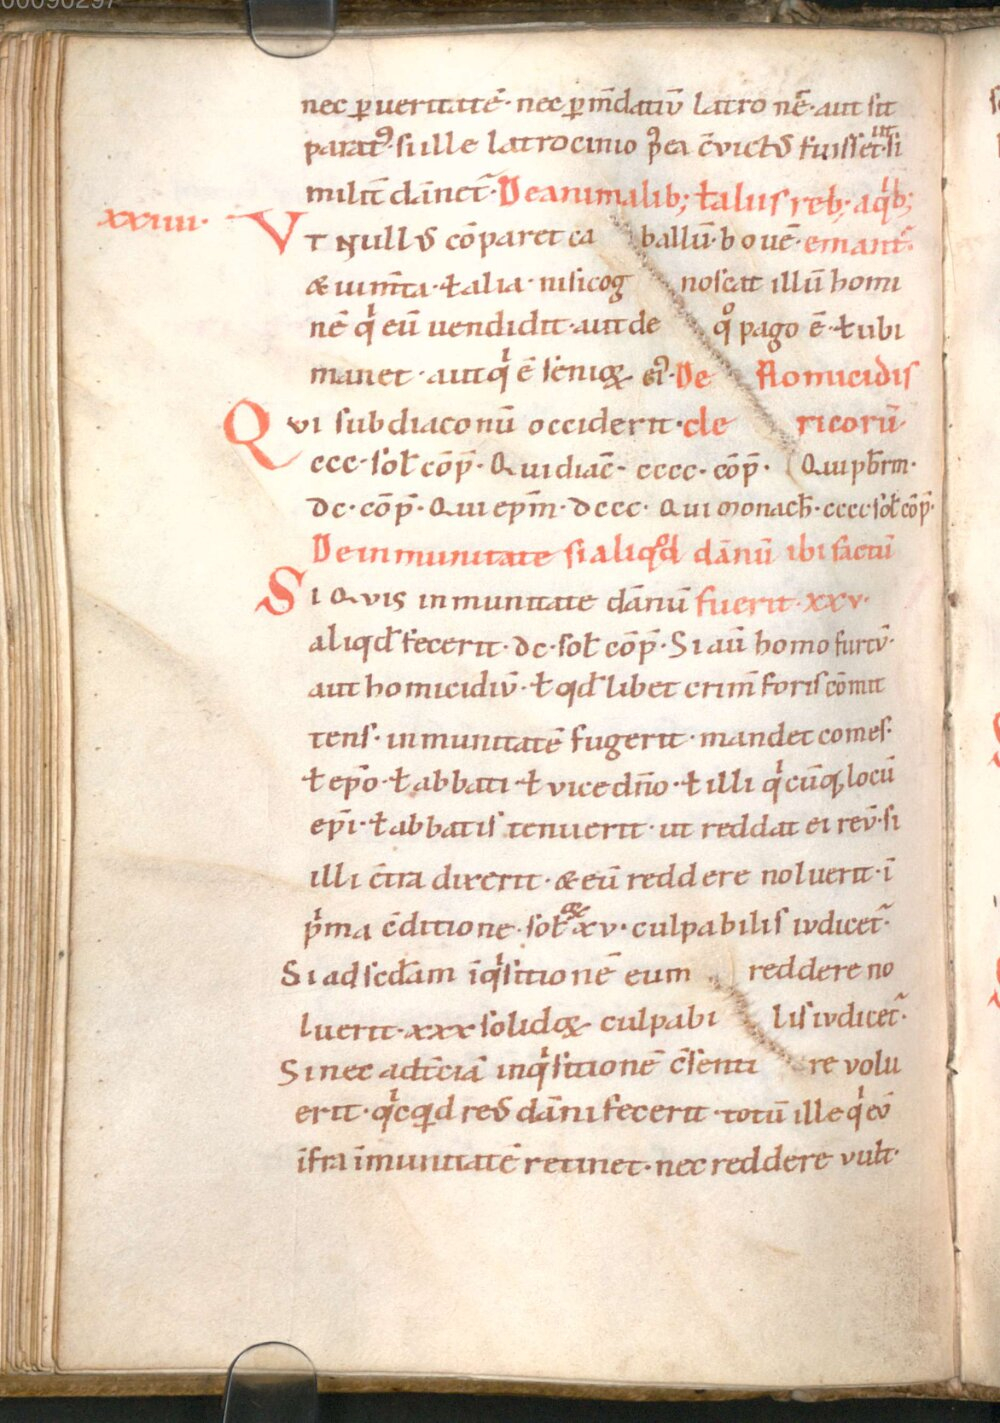 00090297
nec ꝑ ueritatē· nec ꝑ m̄datiū latro nē· aut sit
parat᷒· si ille latrocinio p̄ea c̄victꝰ fuisset· ut si
militē dānet᷑· De animalib; ł alus reb; aqͥb;
xxiiii· VT Nullꝰ cōparet caballū· bouē· emant᷑·
& iumēta· ł alia· nisi cognoscat illū homi
nē qͥ eū uendidit· aut de qͦ pago ē· ł ubi
manet· aut qͥ ē senioꝝ ei᷒· De homicidiis
QVI subdiaconū occiderit· clericorū·
ccc· sol̄ cōp̄· Qui diac̄· cccc· cōp̄· Qui pb̄rm·
dc· cōp̄· Qui ep̄m· dccc· Qui monach̄· cccc· sol̄ cōp̄·
De inmunitate si aliqd̄ dānū ibi factū
SI QVIS inmunitate dānū fuerit· xxv·
aliqd̄ fecerit· dc· sol̄ cōp̄· Si aū homo furtū·
aut homicidiū· ł qd̄ libet crim̄ foris cōmit
tens· inmunitatē fugerit· mandet comes·
ł ep̄o· ł abbati· ł vicedn̄o· ł illi qͥcūq; locū
ep̄i· ł abbatis tenuerit· ut reddat ei reū· si
illi c̄tra dixerit· & eū reddere noluerit· ī
pͥma c̄ditione· sol̄ xv· culpabilis iudicet᷑·
Si ad scd̄am īqͥsitionē eum reddere no
luerit· xxx solidoꝝ culpabilis iudicet᷑·
Si nec ad t̄ciā inqͥsitionē c̄sentire volu
erit· qͥcqd reꝰ dāni fecerit· totū ille qͥ eū
īfra īmunitatē retinet· nec reddere vult·